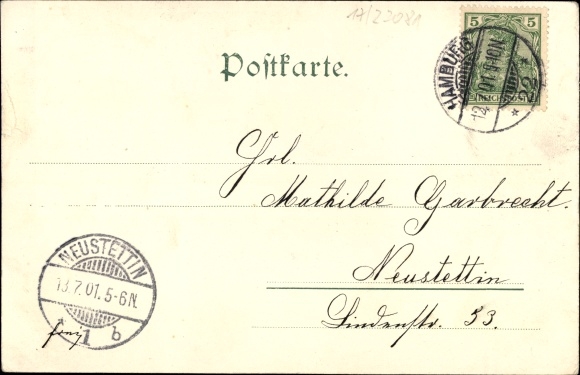 17/23081
5 5
REICHSPOST
HAMBURG
12.7.01.5-10N.
* 22 *
Postkarte.
Frl.
Mathilde Garbrecht.
Neustettin
Lindenstr. 53.
NEUSTETTIN
13.7.01.5-6N.
* 1 b
frei